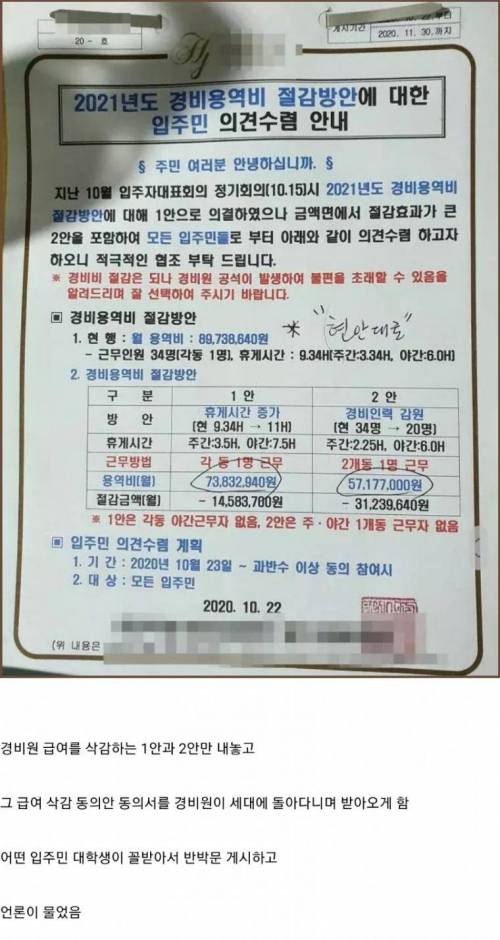 20 - 호
게시기간
2020. 11. 30.까지
2021년도 경비용역비 절감방안에 대한
입주민 의견수렴 안내
§ 주민 여러분 안녕하십니까. §
지난 10월 입주자대표회의 정기회의(10.15)시 2021년도 경비용역비
절감방안에 대해 1안으로 의결하였으나 금액면에서 절감효과가 큰
2안을 포함하여 모든 입주민들로 부터 아래와 같이 의견수렴 하고자
하오니 적극적인 협조 부탁 드립니다.
※ 경비비 절감은 되나 경비원 공석이 발생하여 불편을 초래할 수 있음을
알려드리며 잘 선택하여 주시기 바랍니다.
▣ 경비용역비 절감방안 * "현안대로"
1. 현 행 : 월 용역비 : 89,738,640원
- 근무인원 34명(각동 1명), 휴게시간 : 9.34H(주간:3.34H, 야간:6.0H)
2. 경비용역비 절감방안
구 분 1 안 2 안
방 안 휴게시간 증가 (현 9.34H → 11H) 경비인력 감원 (현 34명 → 20명)
휴게시간 주간:3.5H, 야간:7.5H 주간:2.25H, 야간:6.0H
근무방법 각 동 1명 근무 2개동 1명 근무
용역비(월) 73,832,940원 57,177,000원
절감금액(월) - 14,583,780원 - 31,239,640원
※ 1안은 각동 야간근무자 없음, 2안은 주 · 야간 1개동 근무자 없음
▣ 입주민 의견수렴 계획
1. 기 간 : 2020년 10월 23일 ~ 과반수 이상 동의 참여시
2. 대 상 : 모든 입주민
2020. 10. 22
(위 내용은
경비원 급여를 삭감하는 1안과 2안만 내놓고
그 급여 삭감 동의안 동의서를 경비원이 세대에 돌아다니며 받아오게 함
어떤 입주민 대학생이 꼴받아서 반박문 게시하고
언론이 물었음